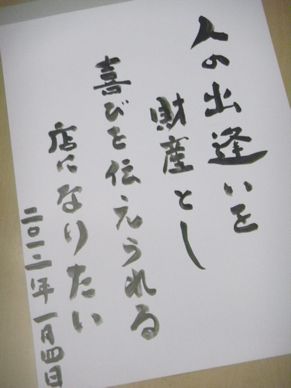 人の出逢いを
財産とし
喜びを伝えうれる
店になりたい
二〇一二年一月四日